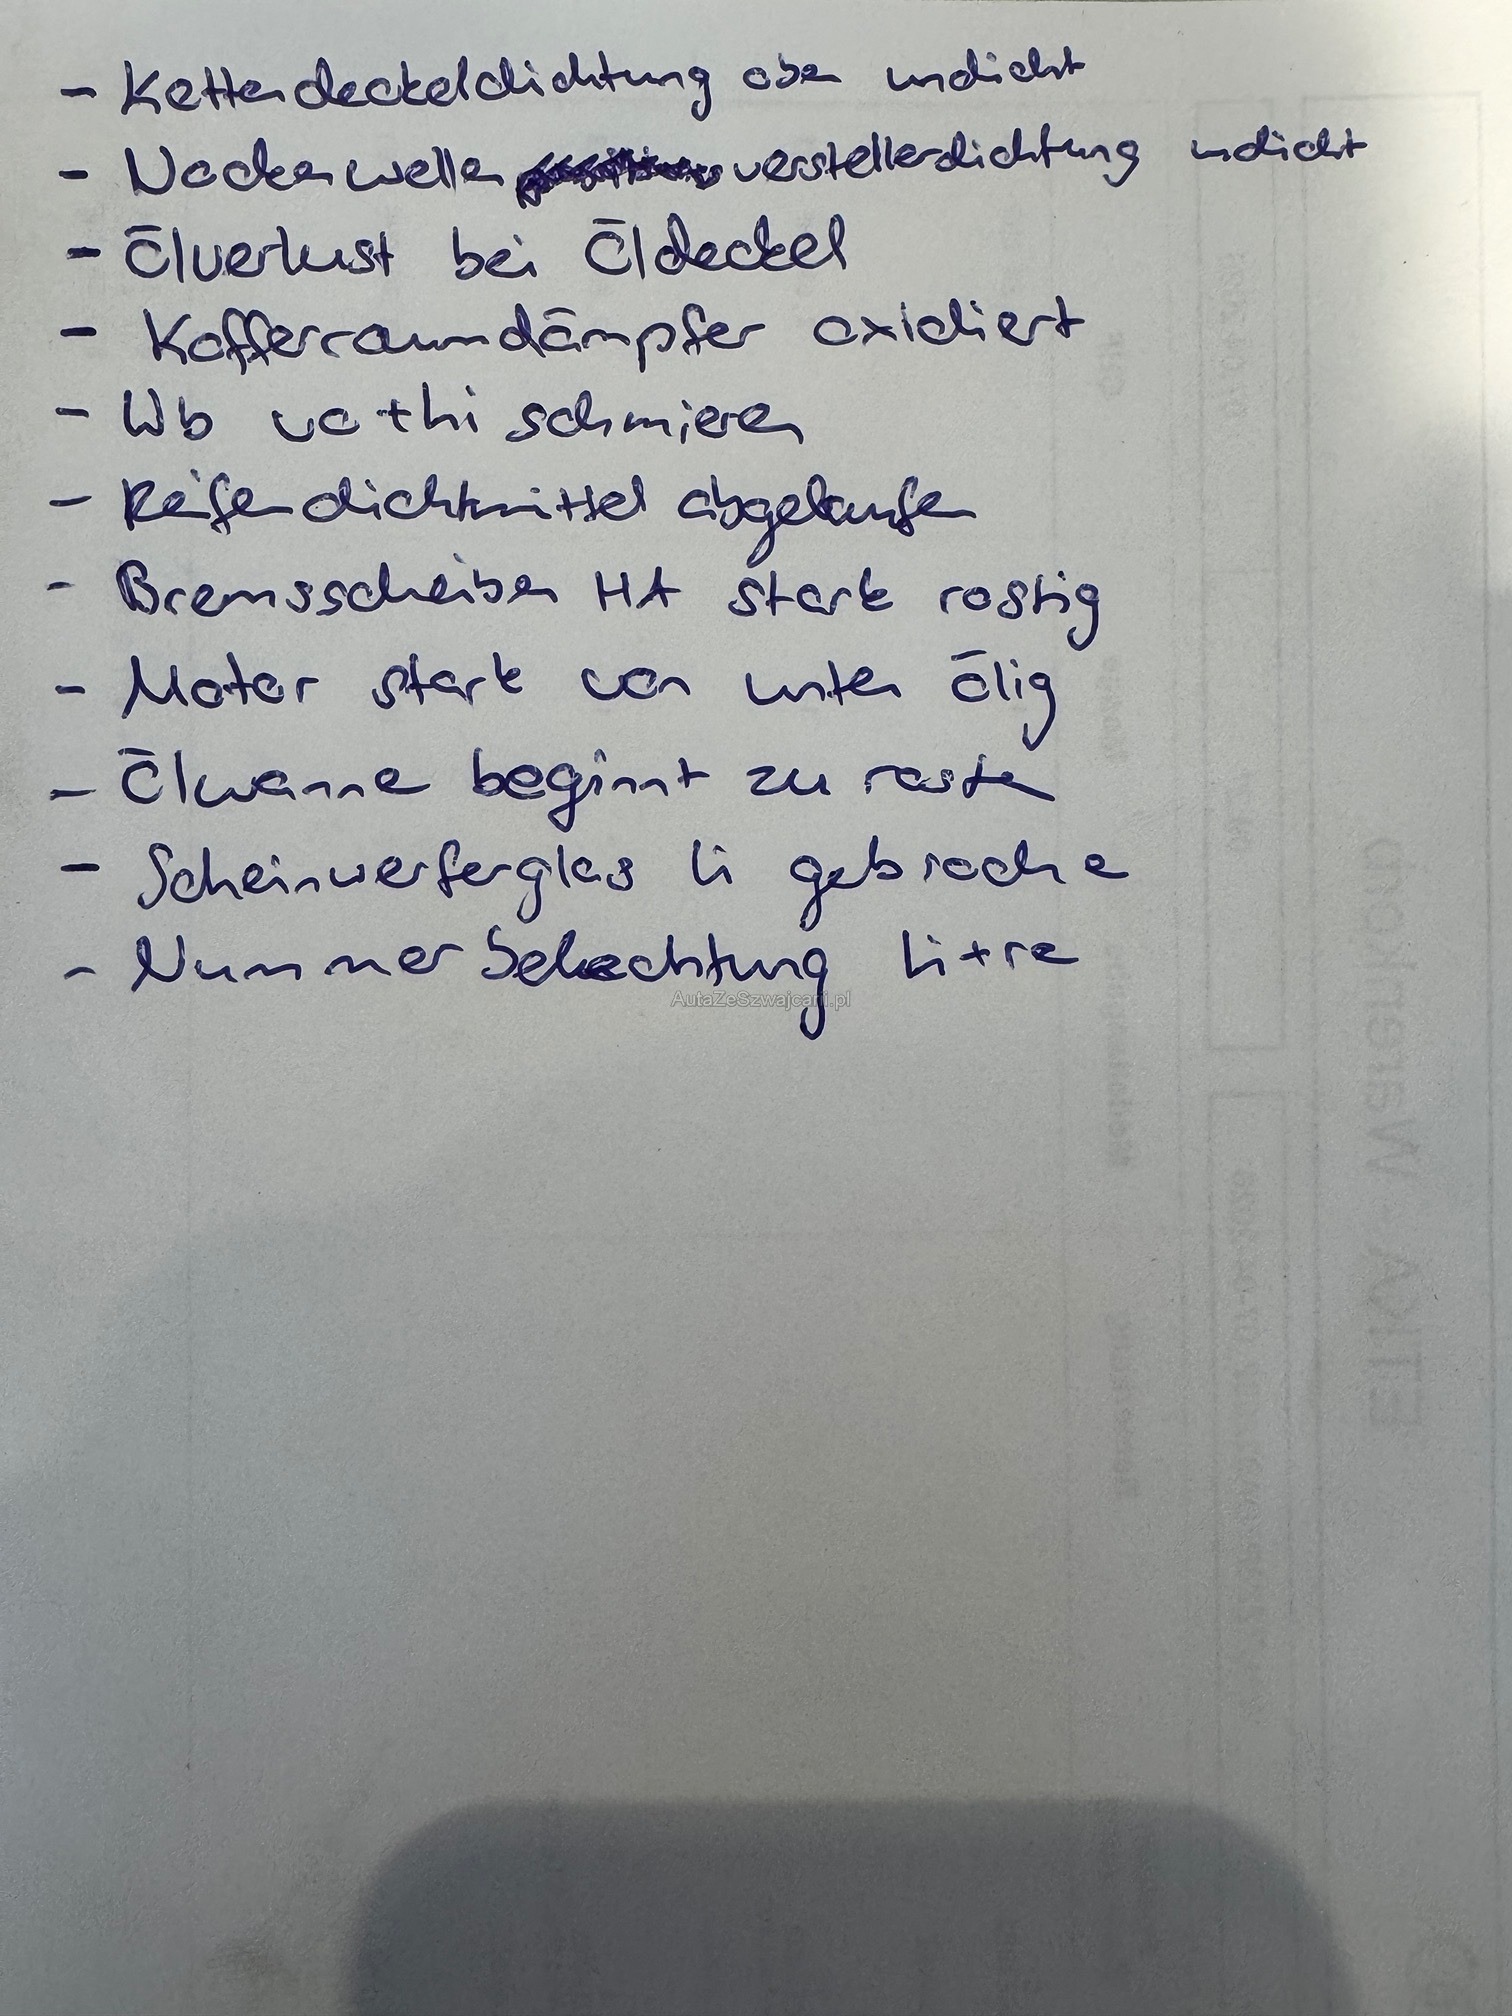 - Kettendeckeldichtung oben undicht
- Nockenwellen verstellerdichtung undicht
- Ölverlust bei Öldeckel
- Kofferraumdämpfer oxidiert
- Wb vo + hi schmieren
- Reifendichtmittel abgelaufen
- Bremsscheiben HA stark rostig
- Motor stark von unten ölig
- Ölwanne beginnt zu rosten
- Scheinwerferglas li gebroche
- Nummerbeleuchtung li + re
AutaZeSzwajcarii.pl